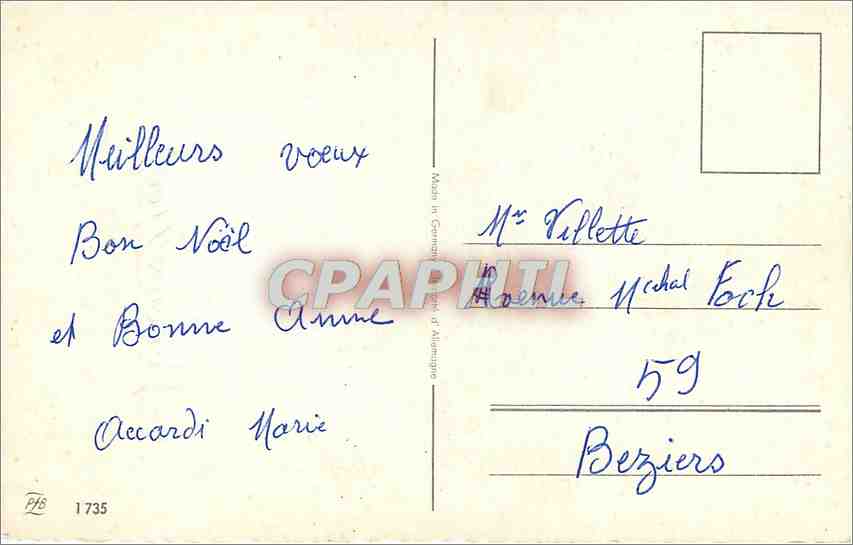 Meilleurs voeux
Bon Noël
et Bonne Anne
Accardi Marie
PfB 1735
Made in Germany
d'Allemagne
CPAPHIL
Mme Villette
Avenue Mchal Foch
59
Beziers